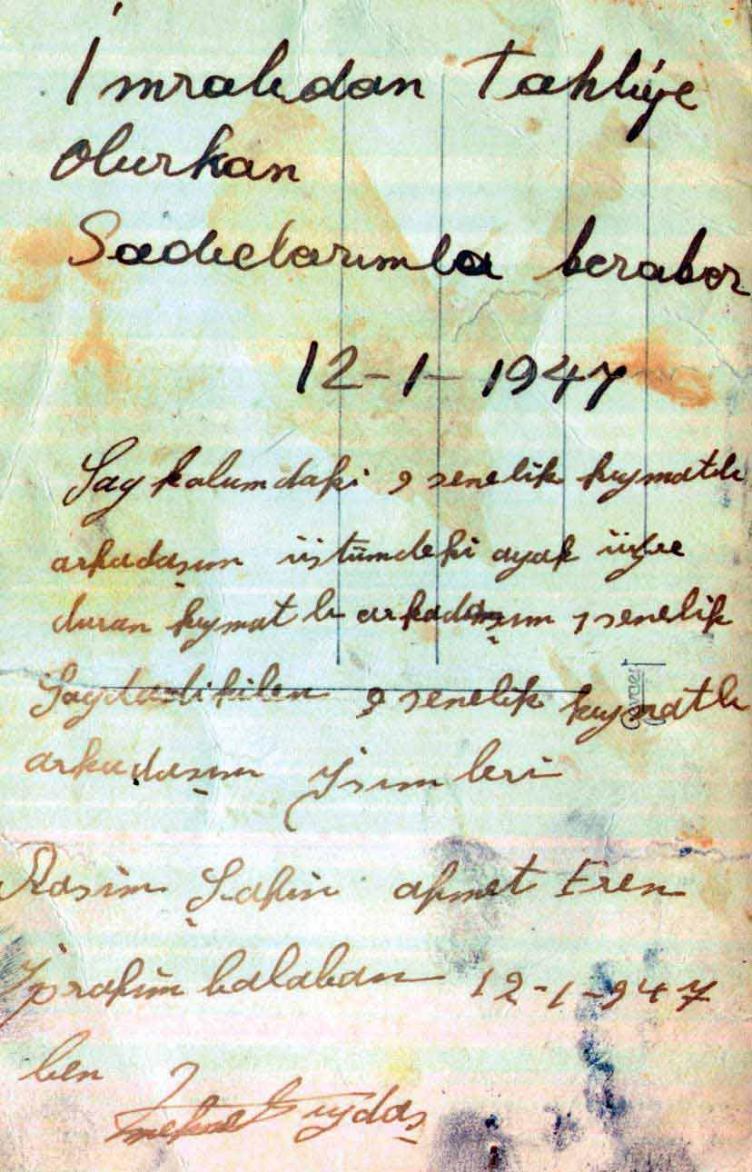 İmralıdan tahliye
olurkan
Sadıclarımla beraber
12-1-1947
Sag kolumdaki 9 senelik kıymatlı
arkadaşım üstümdeki ayak üzre
duran kıymatlı arkadaşım 7 senelik
9 senelik kıymatlı
arkadaşım isimleri
Rasim Şahin ahmet Eren
İprahim balaban 12-1-947
ben
mehmet